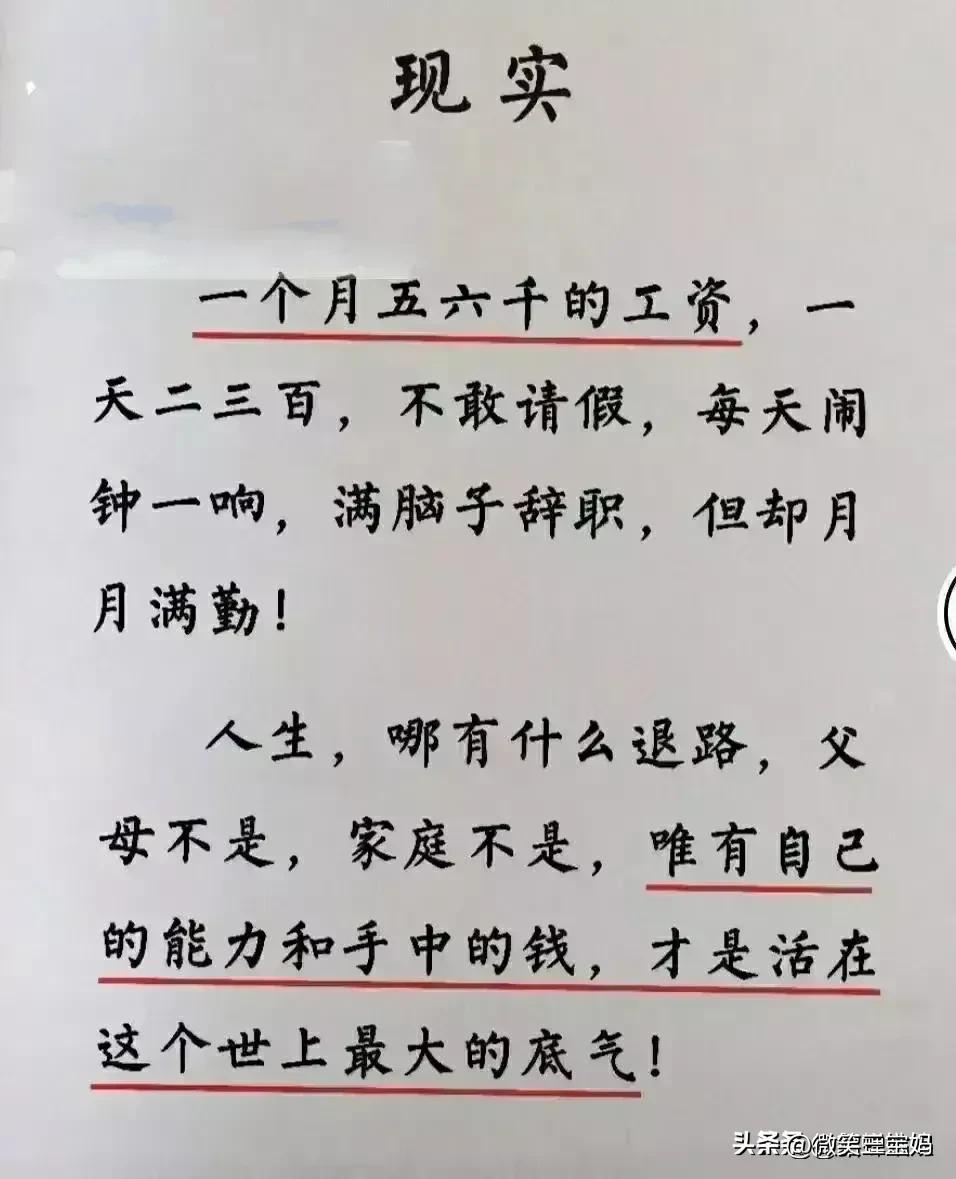 现实
一个月五六千的工资，一
天二三百，不敢请假，每天闹
钟一响，满脑子辞职，但却月
月满勤！
人生，哪有什么退路，父
母不是，家庭不是，唯有自己
的能力和手中的钱，才是活在
这个世上最大的底气！
头条 @微笑